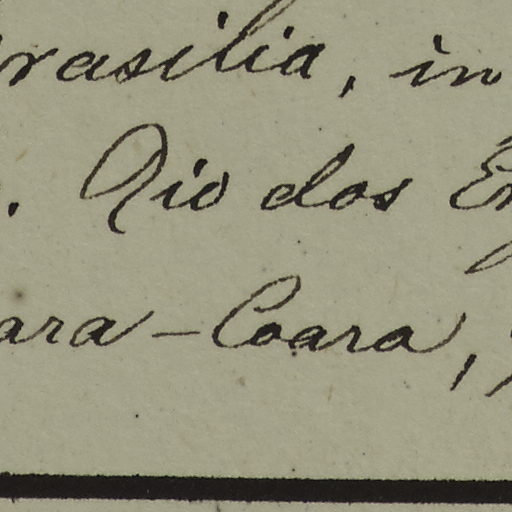 rasilia, in
. Rio dos
ara-Coara,